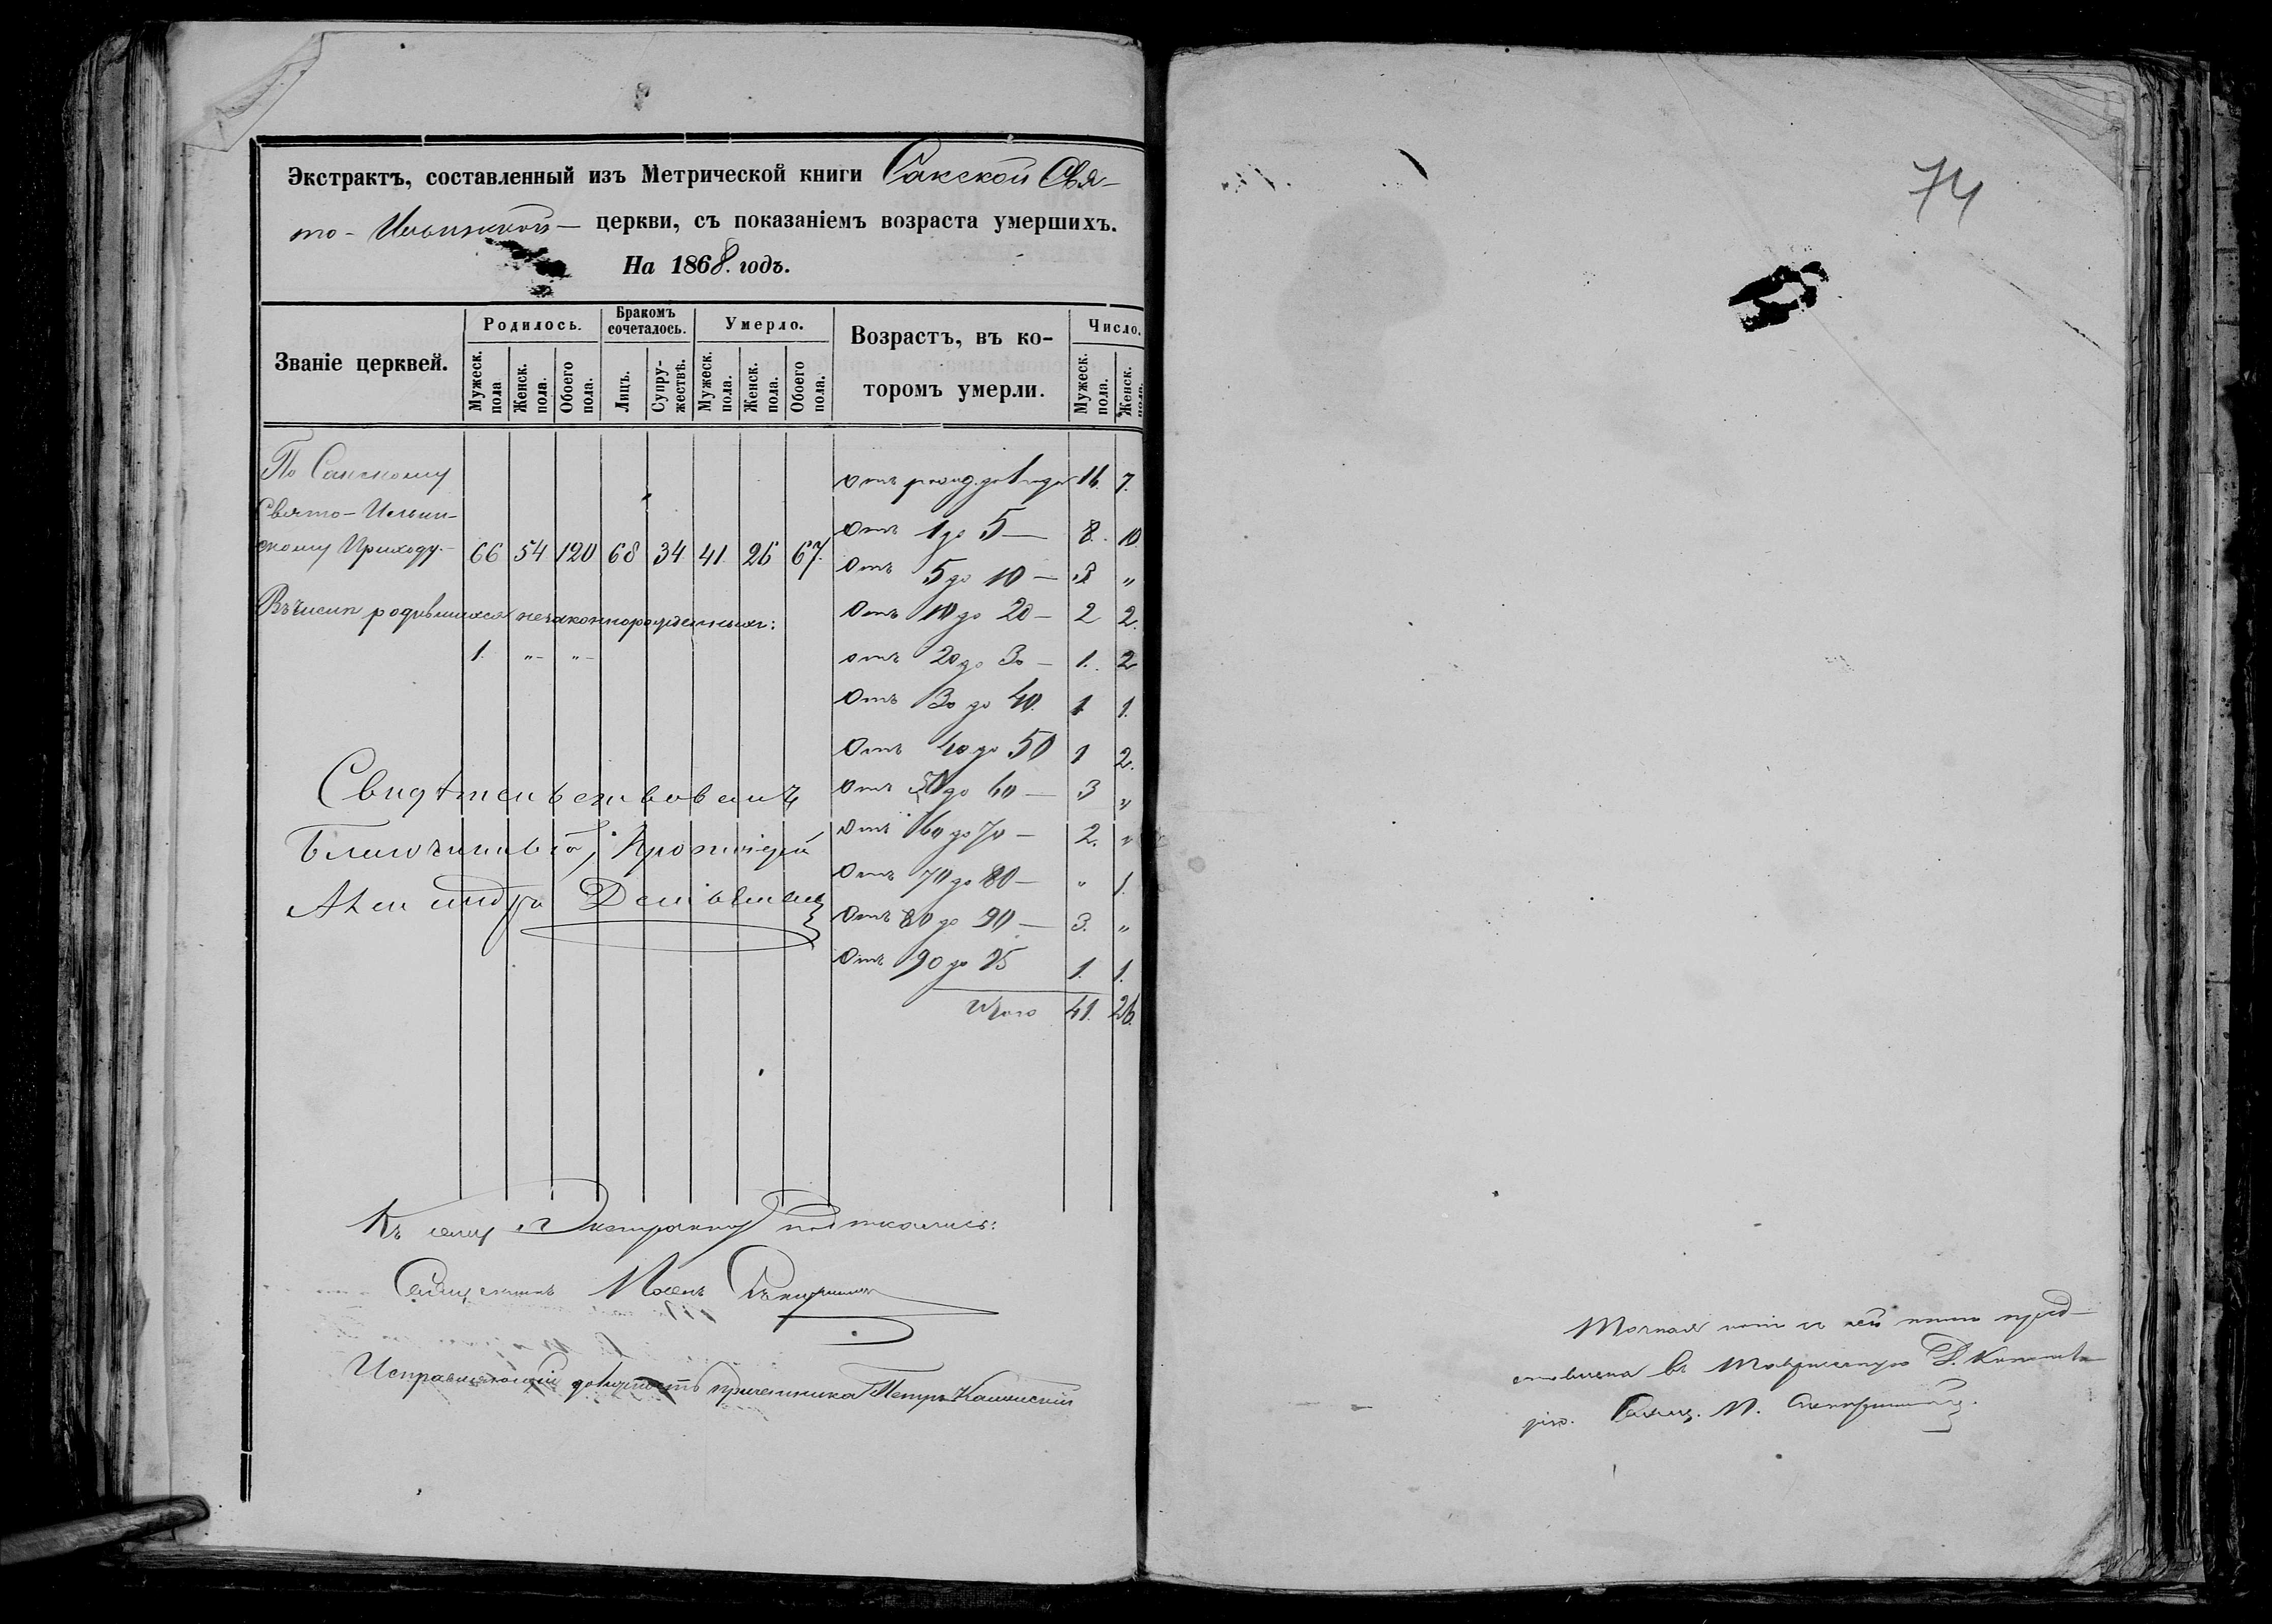 Экстрактъ, составленный изъ Метрической книги Сакской Свя-
то-Ильинской церкви, съ показаніемъ возраста умершихъ.
На 1868. годъ.
Званіе церквей.
Родилось.
Бракомъ сочеталось.
Умерло.
Возрастъ, въ ко-
торомъ умерли.
Число.
Мужеск. пола
Женск. пола.
Обоего пола.
Лицъ.
Супру-жествъ.
Мужеск. пола.
Женск. пола.
Обоего пола.
Мужеск. пола.
Женск. пола.
По Сакскому
Свято-Ильин-
скому Приходу. 66 54 120 68 34 41 26 67.
Въ числѣ родившихся незаконнорожденныхъ:
1. „ „
отъ рожд. до 1 года 16. 7.
Отъ 1 до 5 — 8. 10
Отъ 5 до 10 — 3 „
Отъ 10 до 20 — 2 2.
отъ 20 до 30 — 1. 2
Отъ 30 до 40. 1 1.
Отъ 40 до 50 1 2.
Отъ 50 до 60 — 3 „
Отъ 60 до 70 — 2. „
Отъ 70 до 80 — „ 1.
Отъ 80 до 90 — 3. „
Отъ 90 до 95 1. 1.
Итого 41. 26.
Свидѣтельствовалъ
Благочинный, Протоіерей
Къ сему Экстракту подписались:
Священникъ
Исправляющій должность причетника Петръ
74
Точная съ сей пред-
ставлена въ Таврическую Д.
Свящ.